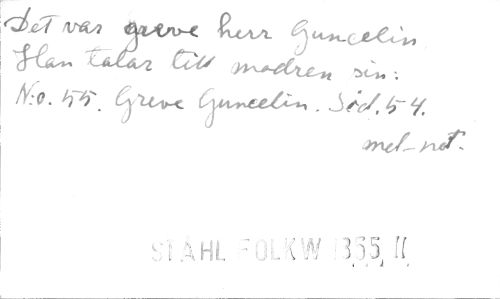 Det var greve herr Guncelin
Han talar till modren sin:
N:o. 55. Greve Guncelin. Sid. 54.
mel-not.
STÅHL FOLKW 1855, II